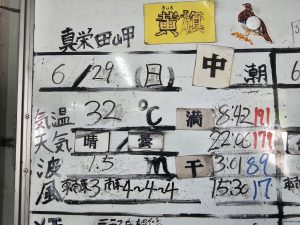 真栄田岬
きいろ
黄旗
6/29(日) 中 潮
気温 32 ℃ 満 8:42 191
天気 晴/曇 22:06 179
波 1.5 m 干 3:01 89
風 東南東3 南東4~4~4 15:30 17